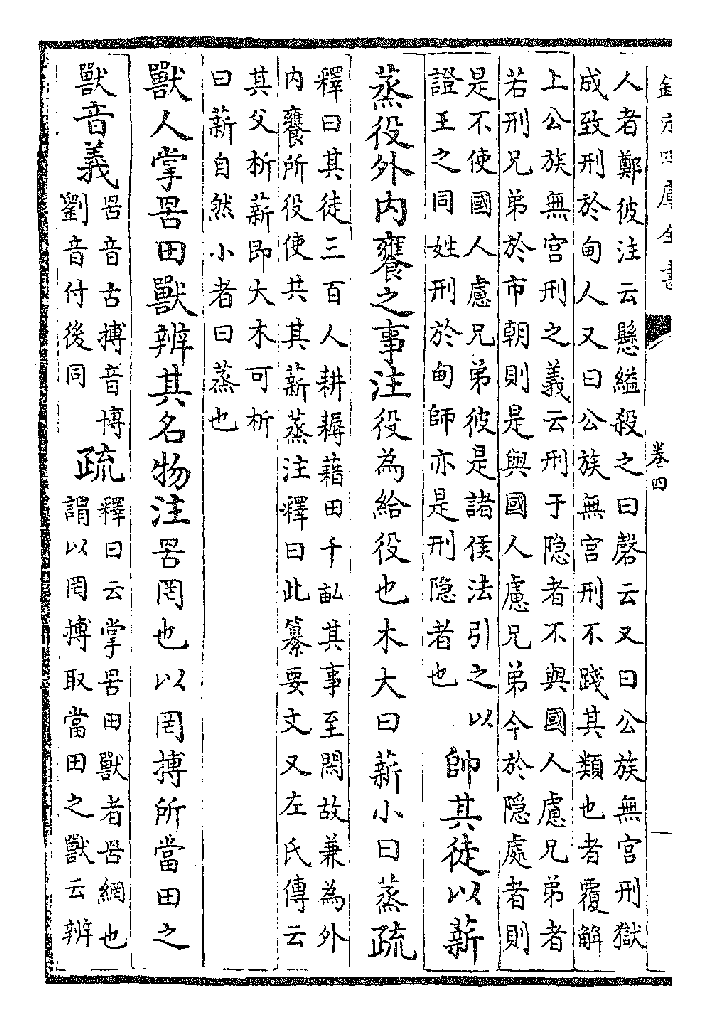 欽定四庫全書
卷四
人者鄭彼注云懸縊殺之曰磬云又曰公族無宫刑獄
成致刑於甸人又曰公族無宫刑不踐其類也者覆解
上公族無宫刑之義云刑于隐者不與國人慮兄弟者
若刑兄弟於市朝則是與國人慮兄弟今於隐處者則
是不使國人慮兄弟彼是諸侯法引之以
證王之同姓刑於甸師亦是刑隐者也
帥其徒以薪
蒸役外内饔之事注役為給役也木大曰薪小曰蒸疏
釋曰其徒三百人耕耨藉田千畝其事至閑故兼為外
内饔所役使共其薪蒸注釋曰此纂要文又左氏傳云
其父析薪即大木可析
曰薪自然小者曰蒸也
獸人掌罟田獸辨其名物注罟罔也以罔搏所當田之
獸音義
罟音古搏音博
劉音付後同
疏
釋曰云掌罟田獸者罟網也
謂以罔搏取當田之獸云辨